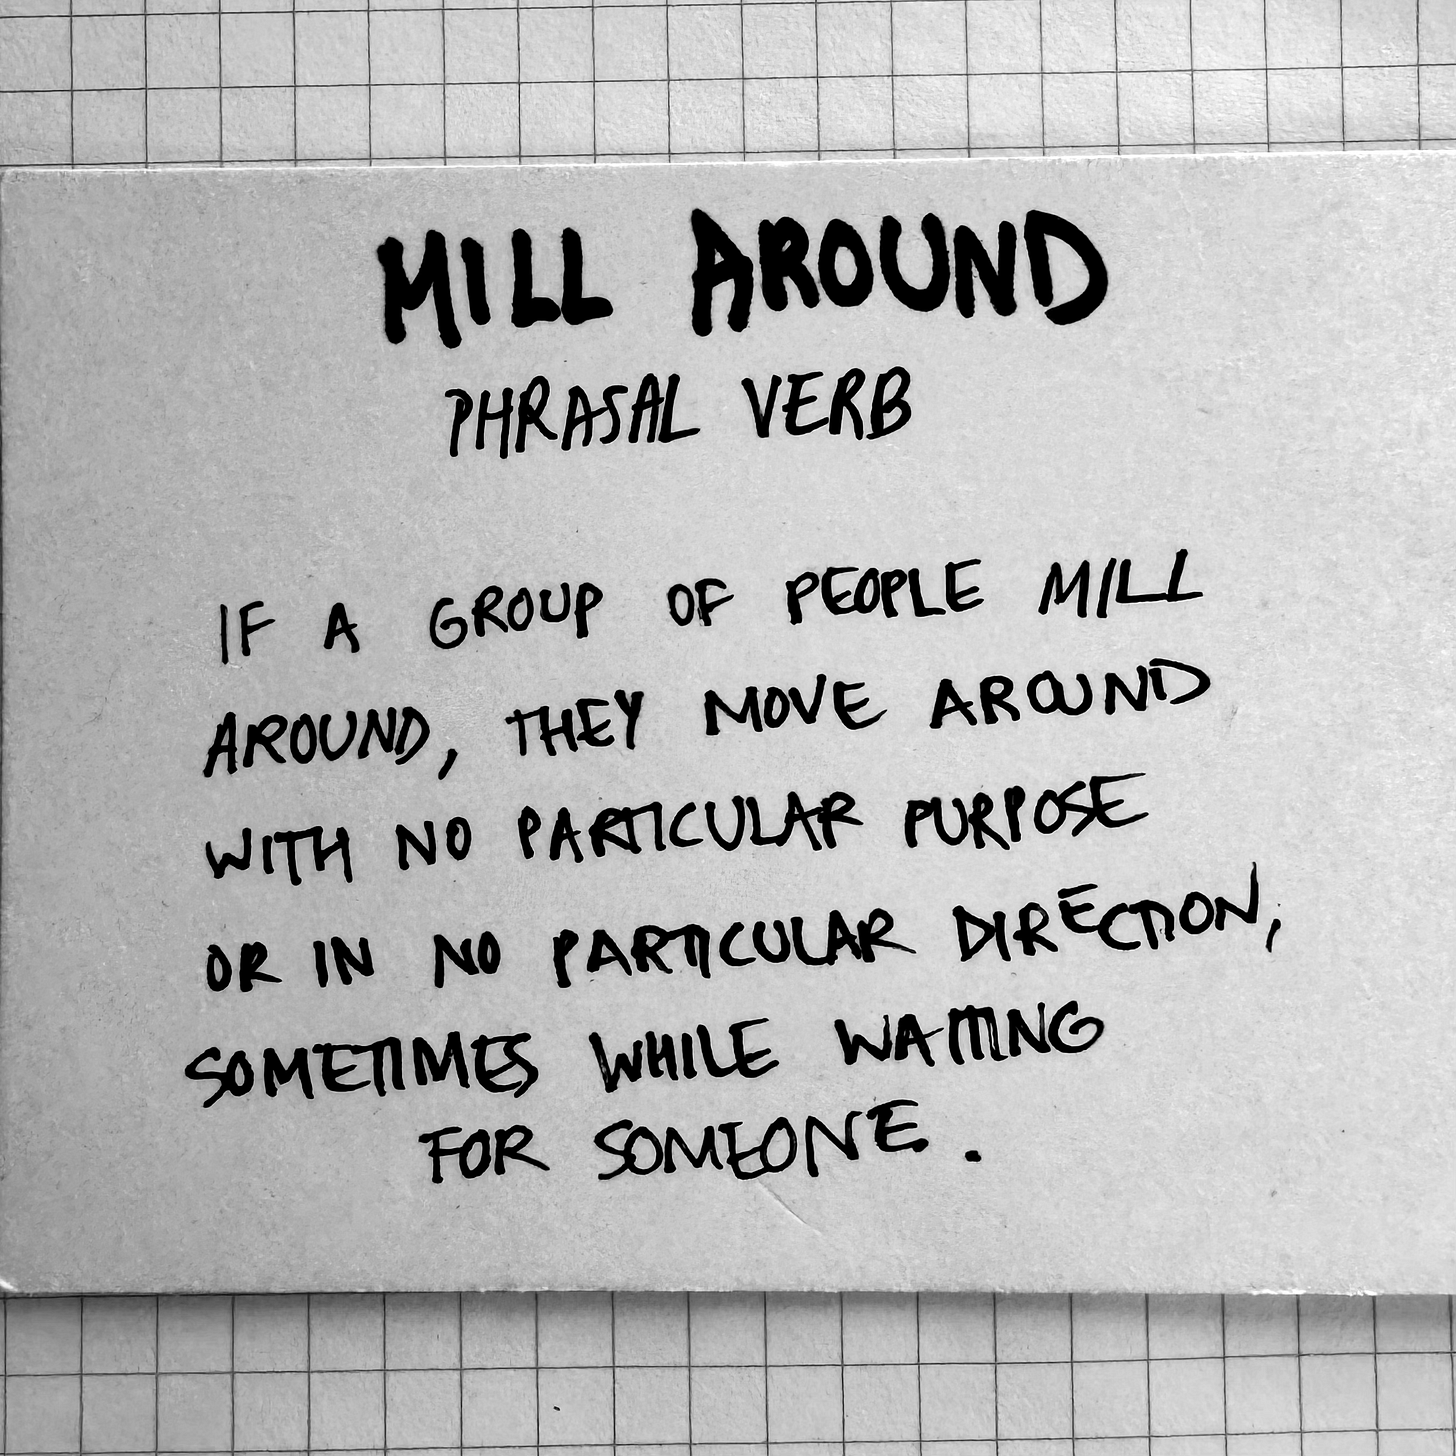 MILL AROUND
PHRASAL VERB
IF A GROUP OF PEOPLE MILL
AROUND, THEY MOVE AROUND
WITH NO PARTICULAR PURPOSE
OR IN NO PARTICULAR DIRECTION,
SOMETIMES WHILE WAITING
FOR SOMEONE.